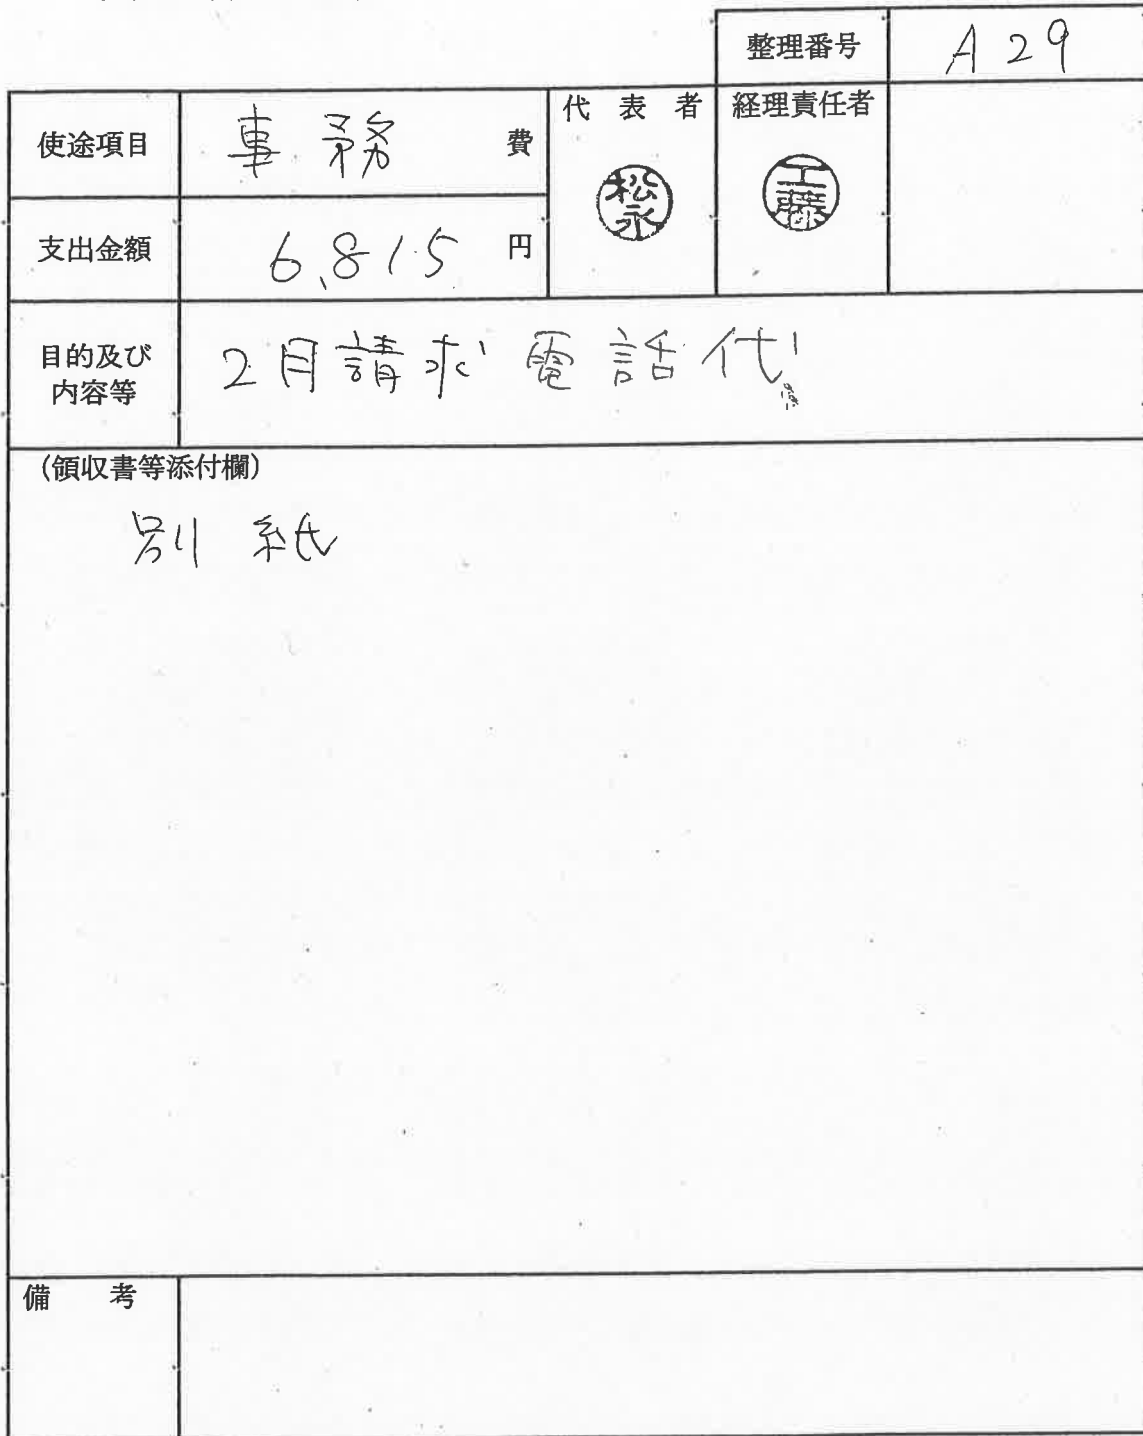 整理番号 A29
使途項目 事務 費
代表者 経理責任者
松永 工藤
支出金額 6,815 円
目的及び内容等 2月請求電話代
(領収書等添付欄)
別紙
備考